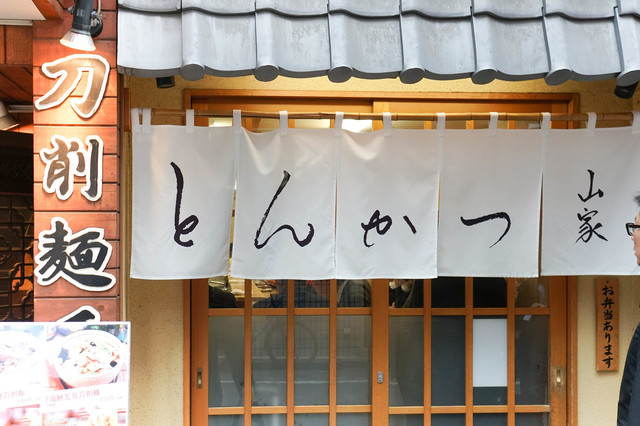 刀削麺
とんかつ
山家
お弁当あります